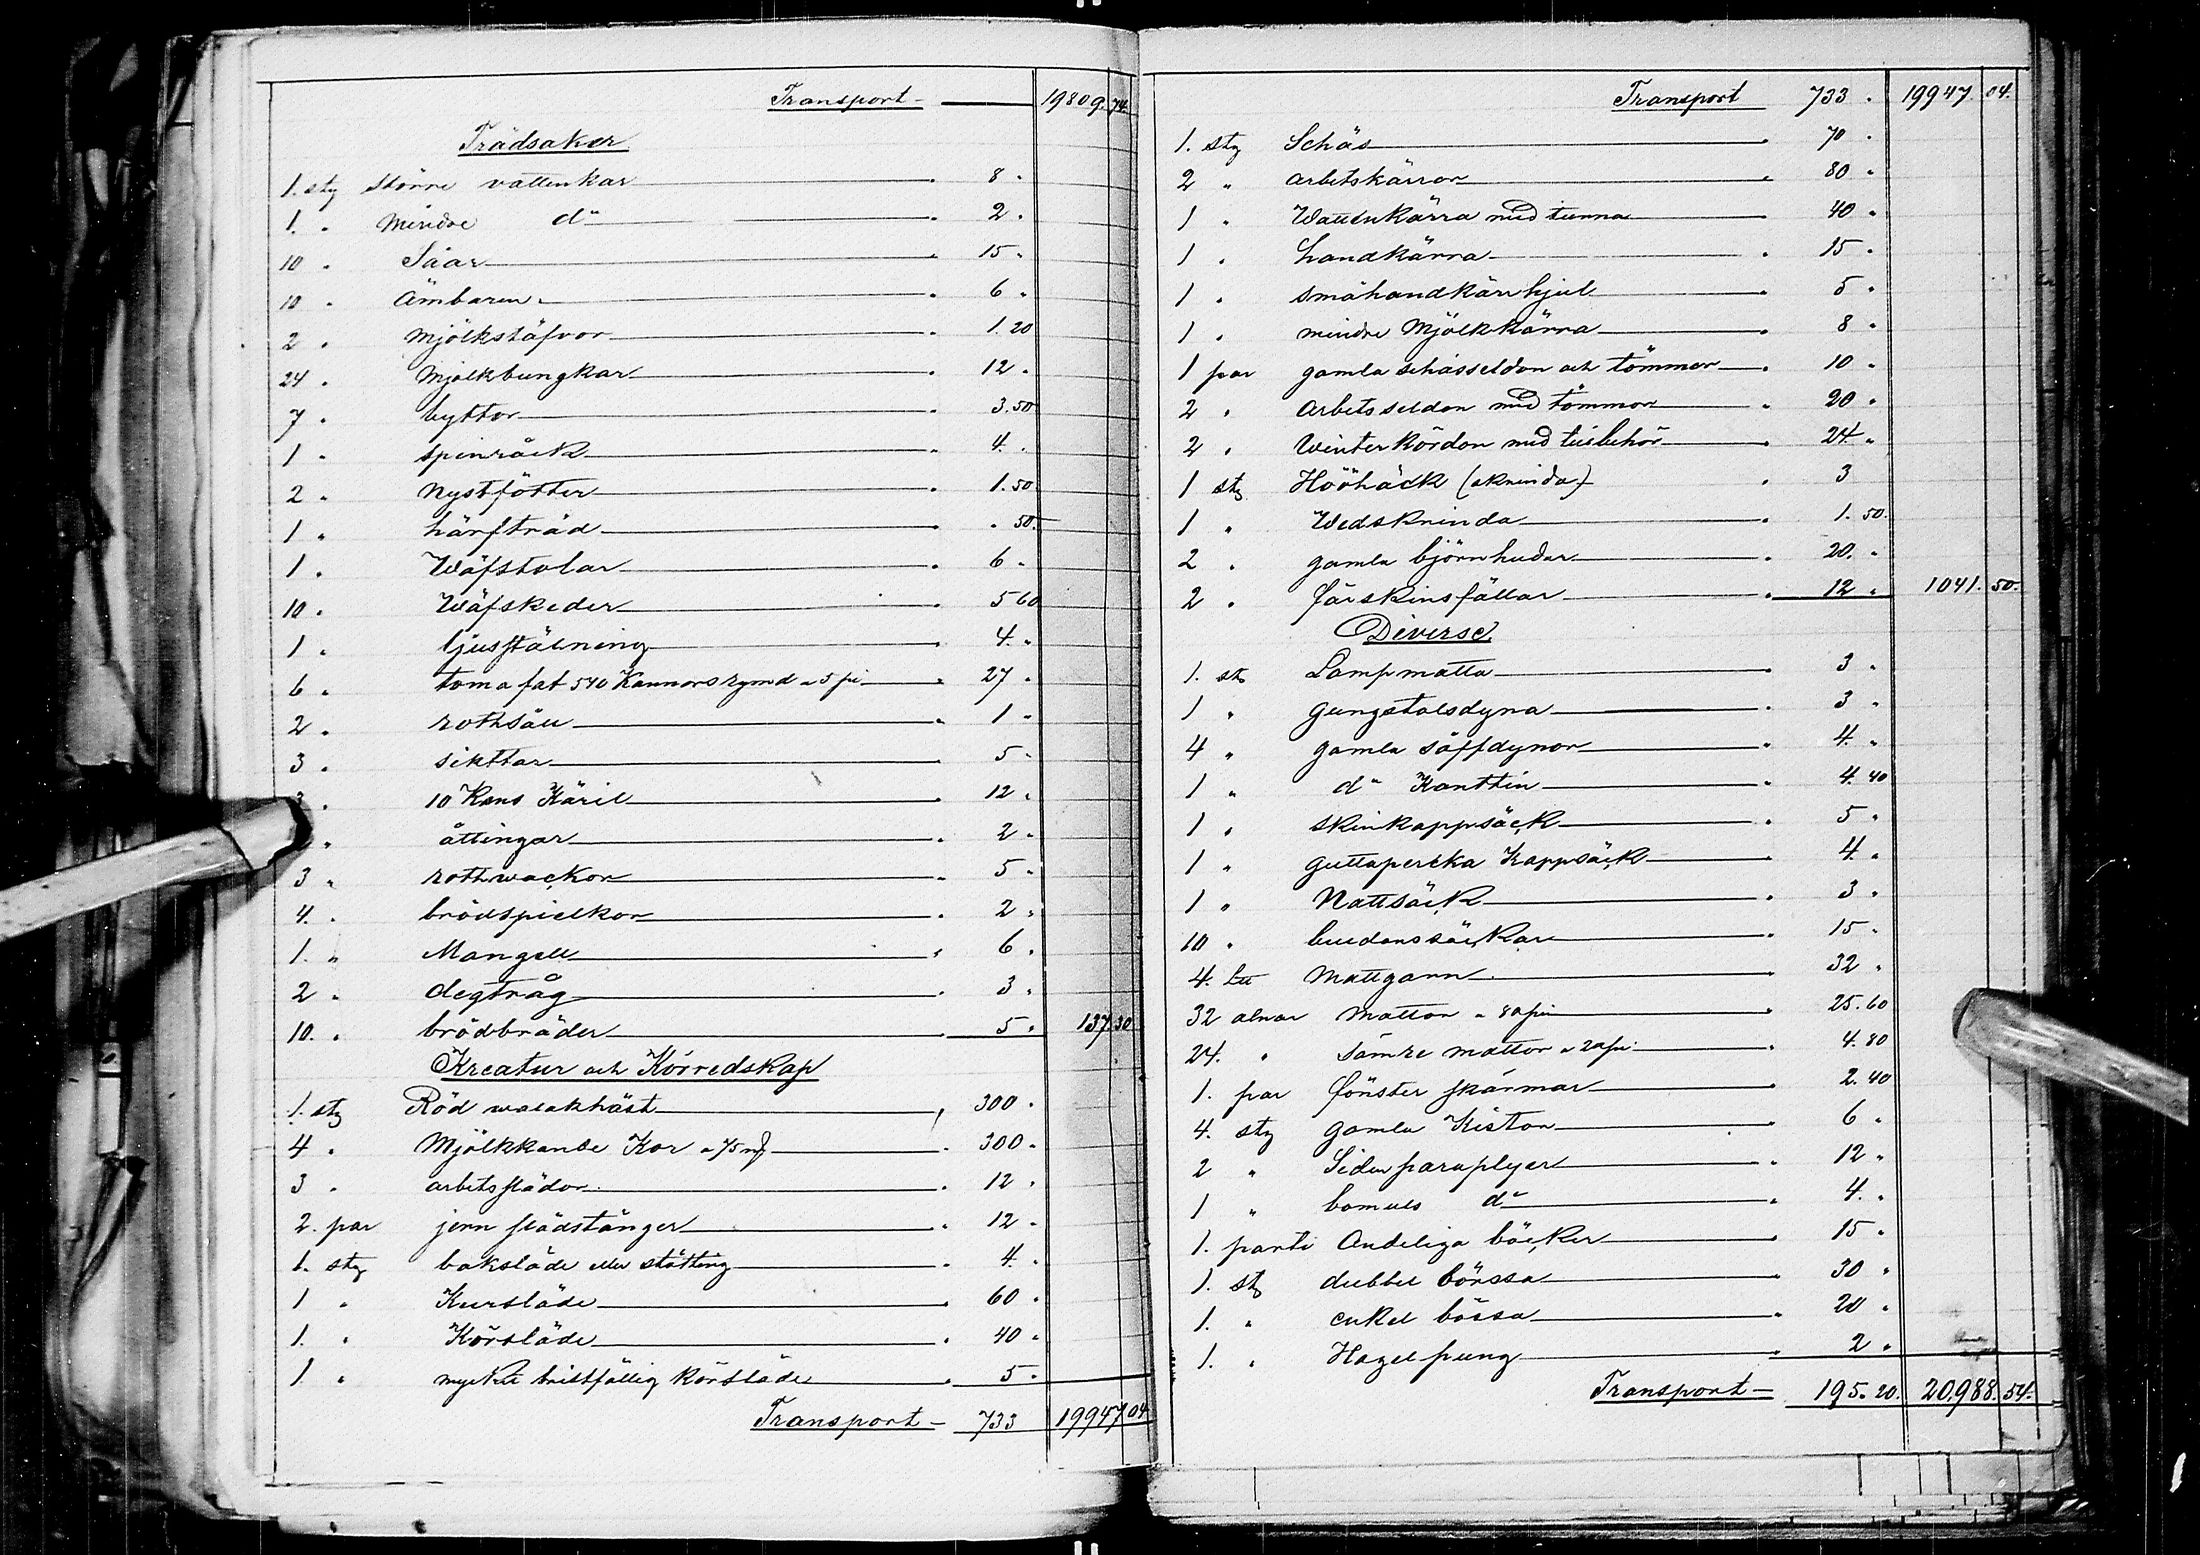 Transport — 19809.74.
Trädsaker
1. sty större vattenkar . 8 .
1. . Mindre d:o . 2 .
10 . Såar . 15 .
10 . ämbaren . 6 .
2 . Mjölkstäfvor . 1.20
24 . Mjölkbungkar . 12 .
7 . byttor . 3.50
1 . spinråck . 4 .
2 . Nystfötter . 1.50
1 . härfträd . . 50.
1 . Wäfstolar . 6 .
10 . Wäfskeder . 5 60
1 . ljusstälning . 4. .
6 . toma fat 540 Kannors rymd a 5 pi . 27 .
2 . rothsåll . 1 .
3 . sikttar . 5 .
10 Kans Käril . 12 .
. åttingar . 2 .
3 . rothwackor . 5 .
4. . brödspielkor . 2 .
1. . Mangell . 6 .
2 . degtråg . 3 .
10. . brödbräder . 5 . 137.30
Kreatur och Körredskap
1. sty Röd walakhäst . 300 .
4 . Mjölkkande Kor a 75 mk . 300 .
3 . arbetsslädor . 12 .
2. par jern slädstänger . 12 .
1. sty baksläde eller stötting . 4. .
1 . Kursläde . 60 .
1. . Körsläde . 40 .
1. . mycket bristfällig körsläde . 5 .
Transport — 733 19947 04
Transport 733 . 19947. 04.
1. sty Schäs . 70 .
2 " arbetskärror . 80 .
1 " Wattenkärra med tunna . 40 .
1 . handkärra . 15 .
1 . småhandkärrhjul . 5 .
1 . mindre Mjölkkärra . 8 .
1 par gamla schässeldon och tömmar . 10 .
2 . Arbetsseldon med tömmor . 20 .
2 . Winterkördon med tillbehör . 24 .
1 sty Hööhäck (skrinda) . 3
1 " Wedskrinda . 1. 50.
2 . gamla björnhudar . 20. .
2 . fårskinsfällar . 12 . 1041. 50.
Diverse
1. st Lampmatta . 3 .
1 " Gungstolsdyna . 3 .
4 " gamla söffdynor . 4. .
1 " d:o Kanttin . 4. 40
1 . skinkappsäck . 5 .
1 " guttapercka Kappsäck . 4. .
1 " Nattsäck . 3 .
10 . buldanssäckar . 15 .
4. Ltt Mattgarn . 32 .
32 alnar Mattor a 80 pi . 25. 60
24. . sämre mattor a 20 pi . 4. 80
1. par fönster skärmar . 2. 40
4. sty gamla Kistor . 6 .
2 " Siden paraplyer . 12 .
1 " bomuls d:o . 4. .
1. parti Andeliga böcker . 15 .
1. st dubbel börssa . 30 .
1. . enkel bössa . 20 .
1. . Hagel pung . 2 .
Transport — 195. 20. 20,988. 54.